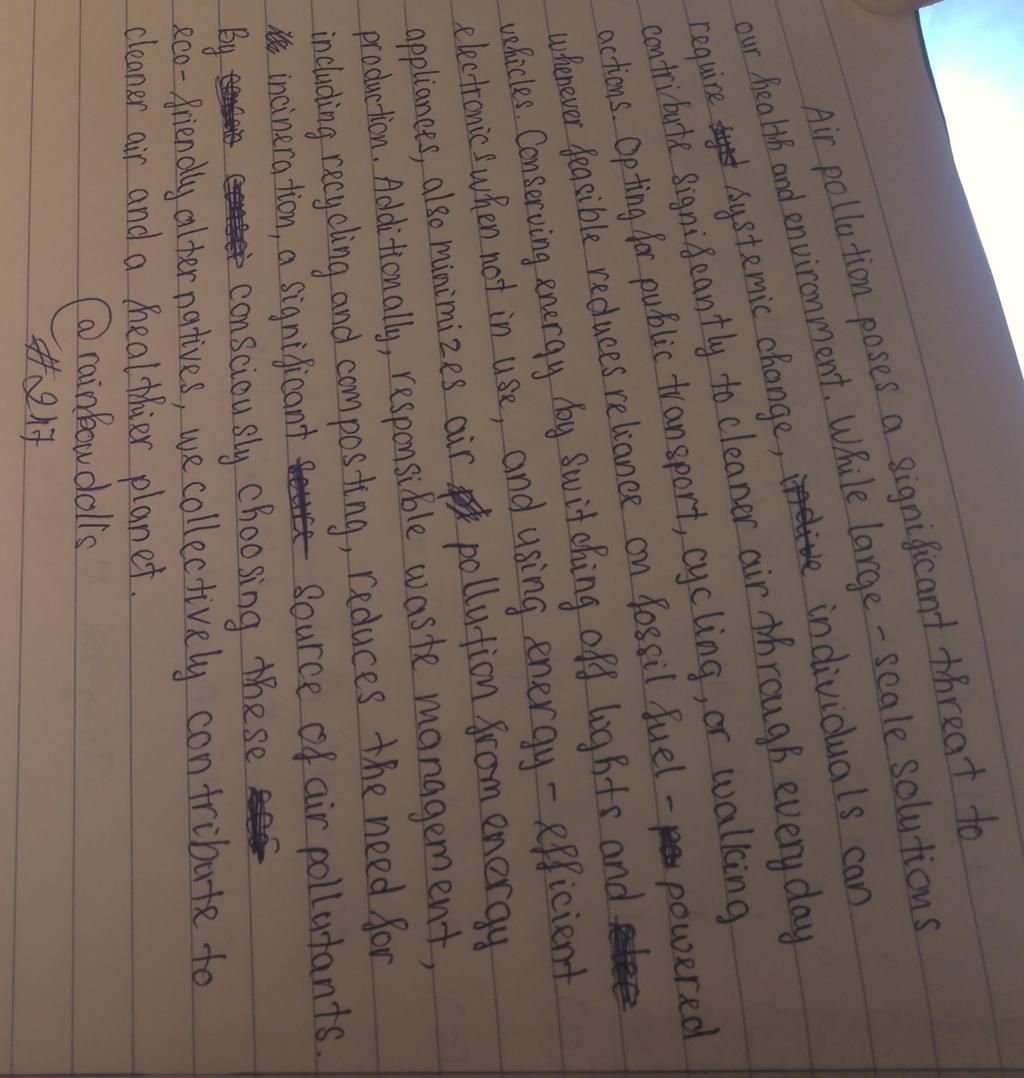 Air pollution poses a significant threat to
our health and environment. While large-scale solutions
require systemic change, individuals can
contribute significantly to cleaner air through everyday
actions. Opting for public transport, cycling, or walking
whenever feasible reduces reliance on fossil fuel-powered
vehicles. Conserving energy by switching off lights and
electronics when not in use, and using energy-efficient
appliances, also minimizes air pollution from energy
production. Additionally, responsible waste management,
including recycling and composting, reduces the need for
incineration, a significant source of air pollutants.
By consciously choosing these
eco-friendly alternatives, we collectively contribute to
cleaner air and a healthier planet.
@rainbowdolls
#217